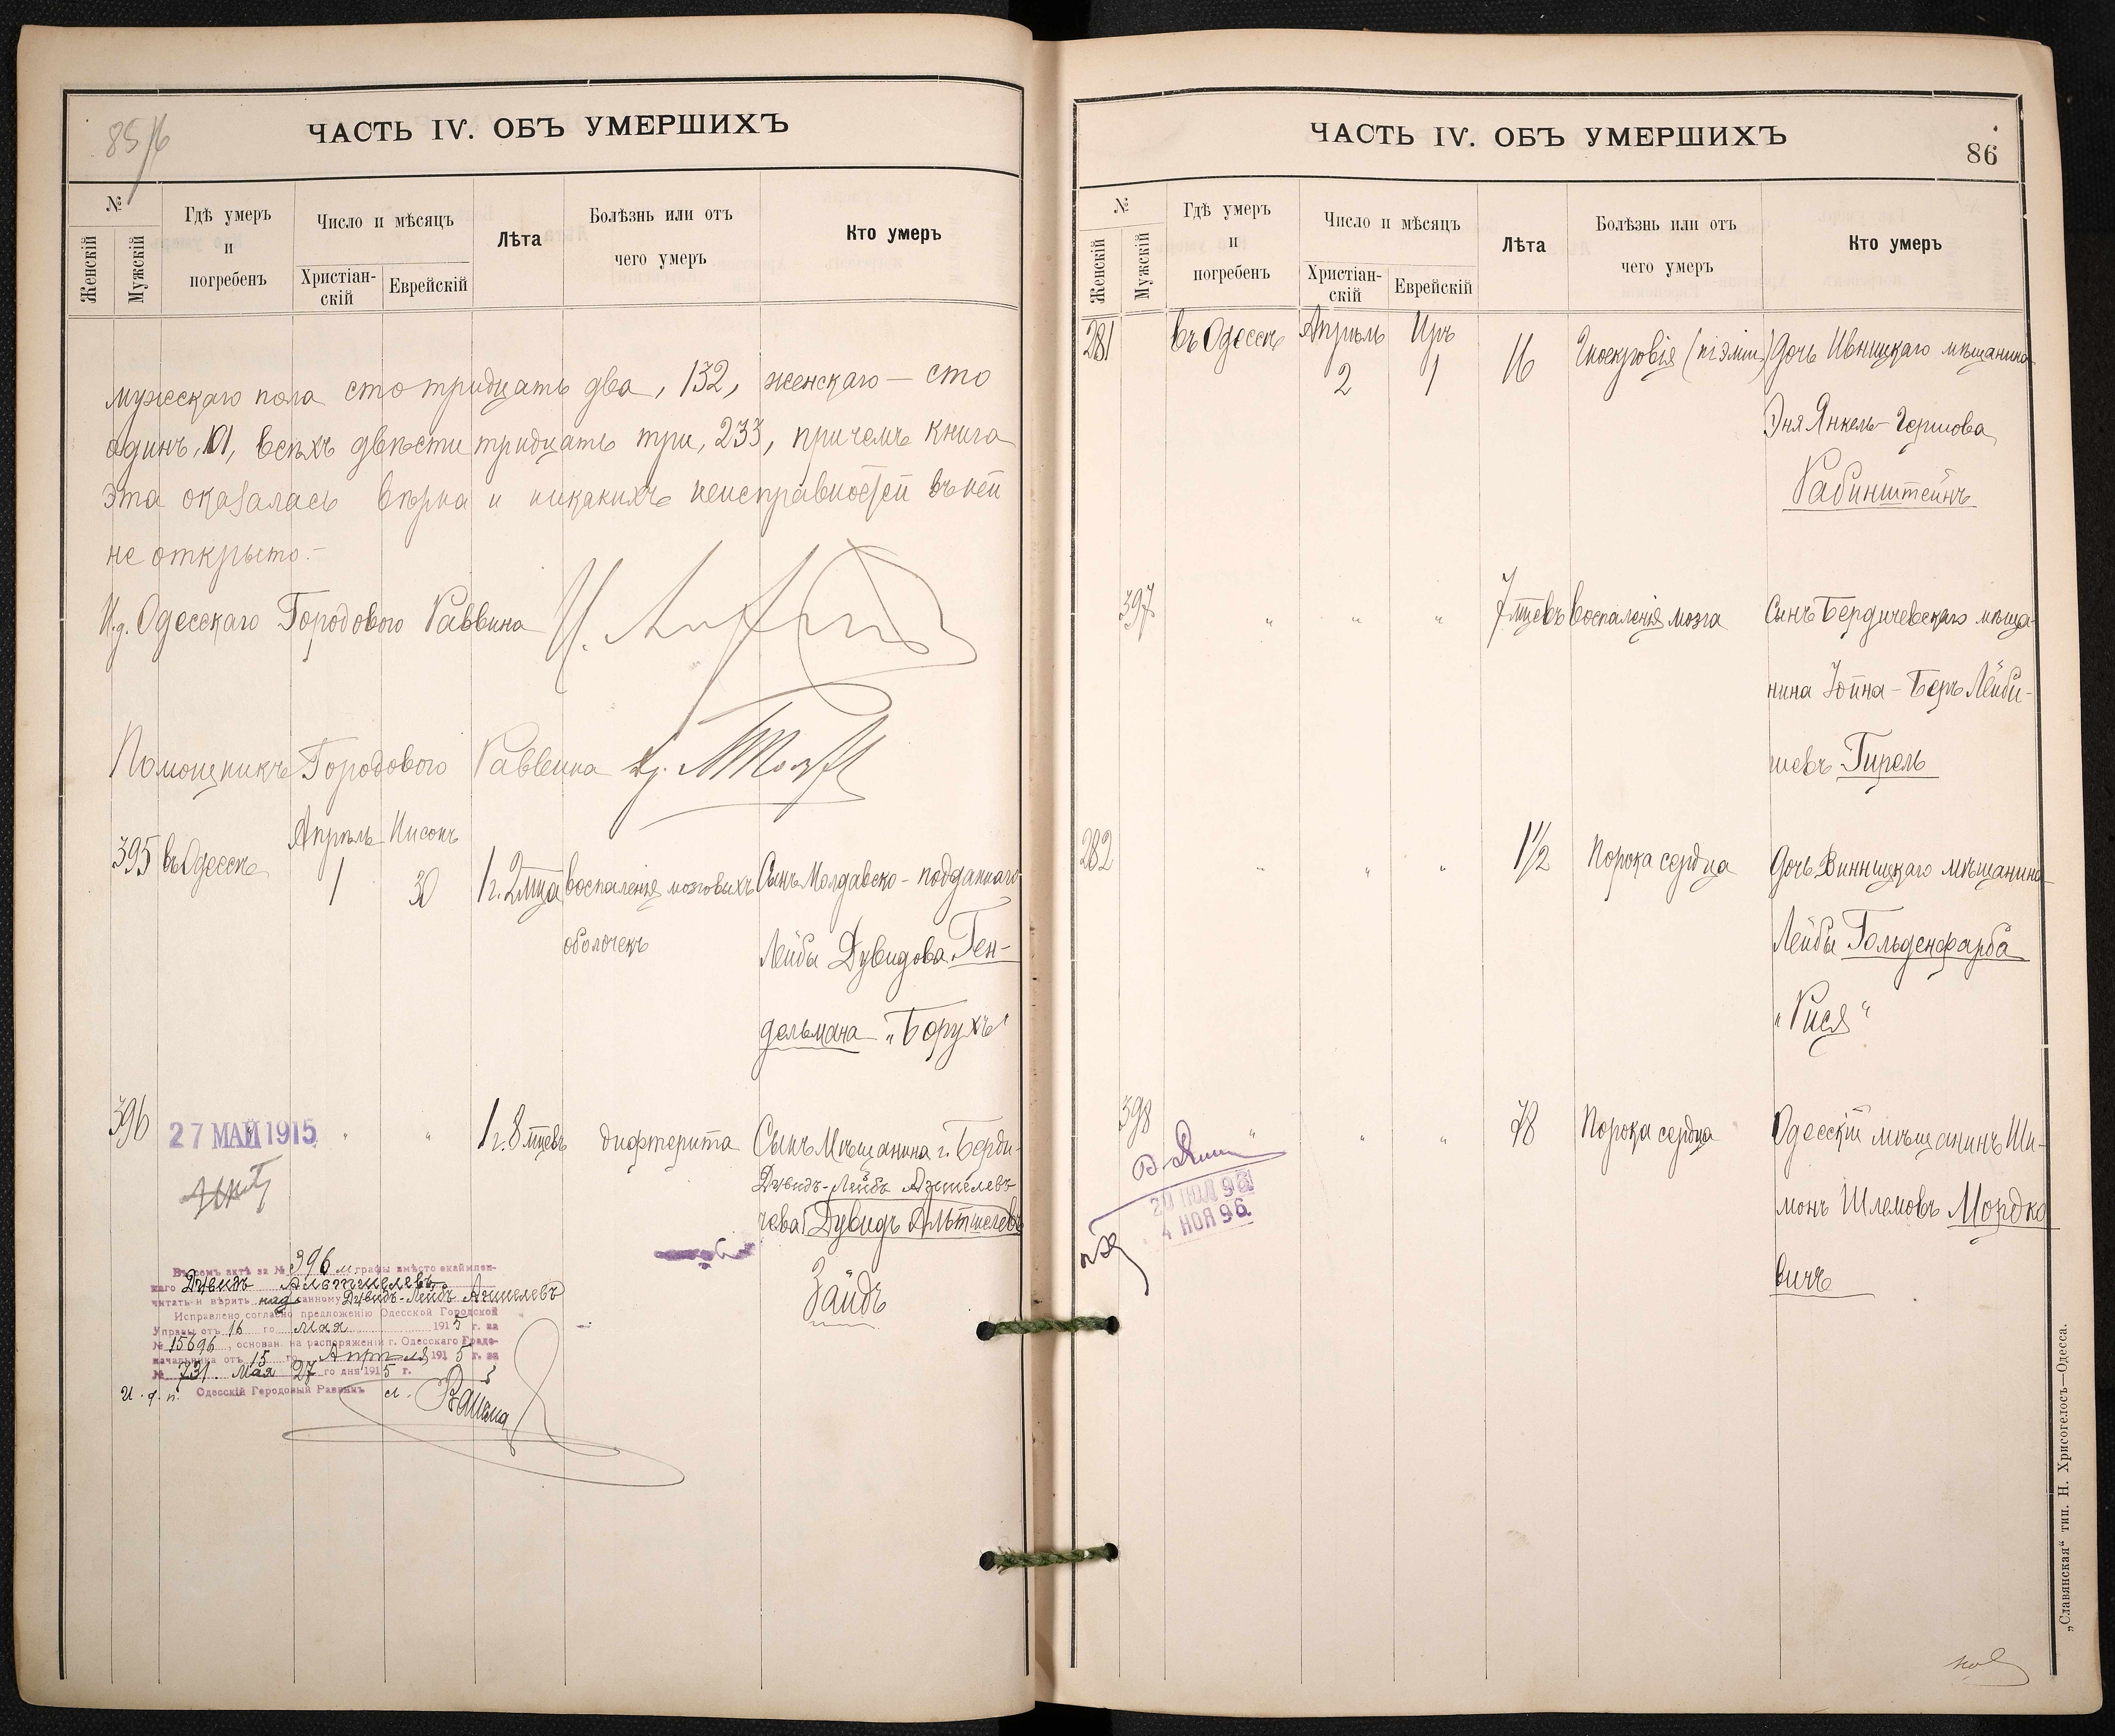 85/6
ЧАСТЬ IV. ОБЪ УМЕРШИХЪ
№
Женскій
Мужскій
Гдѣ умеръ
и
погребенъ
Число и мѣсяцъ
Христіан-
скій
Еврейскій
Лѣта
Болѣзнь или отъ
чего умеръ
Кто умеръ
мужескаго пола сто тридцать два, 132, женскаго — сто
одинъ, 101, всѣхъ двѣсти тридцать три, 233, причемъ книга
эта оказалась вѣрна и никакихъ неисправностей въ ней
не открыто.-
И.д. Одесскаго Городового Раввина
Помощникъ Городового Раввина
Апрѣль Нисонъ
395 въ Одессѣ 1 30 1 г. 2 мца воспаленія мозговыхъ Сынъ Молдавско-подданнаго
оболочекъ Лейбы Дувидова Ген-
дельмана "Борухъ"
396 27 МАЙ 1915 " " 1 г. 8 мцевъ дифтерита Сынъ Мѣщанина г. Берди-
Дувидъ-Лейбъ Аншелевъ
чева Дувидъ Альтшелевъ
Зайдъ
Въ семъ актѣ за № 396 м. графы вмѣсто окаймлен-
наго Дувидъ Альтшелевъ
читать и вѣрить надписанному Дувидъ-Лейбъ Аншелевъ
Исправлено согласно предложенію Одесской Городской
Управы отъ 16 го мая 1915 г. за
№ 15696, основан. на распоряженіи г. Одесскаго Градо-
начальника отъ 15 го Апрѣля 1915 г. за
№ 731. Мая 27 го дня 1915 г.
И. д. п. Одесскій Городовый Раввинъ
ЧАСТЬ IV. ОБЪ УМЕРШИХЪ
86
№
Женскій
Мужскій
Гдѣ умеръ
и
погребенъ
Число и мѣсяцъ
Христіан-
скій
Еврейскій
Лѣта
Болѣзнь или отъ
чего умеръ
Кто умеръ
281 въ Одессѣ Апрѣль Иръ
2 1 16 Гноекровія Дочь Ивницкаго мѣщанина
Эня Янкель-Гершова
Рабинштейнъ
397 " " " 7 мцевъ воспаленія мозга Сынъ Бердичевскаго мѣща-
нина Іойна-Беръ Лейби-
шевъ Гирель
282 " " " 1 1/2 Порока сердца Дочь Винницкаго мѣщанина
Лейбы Гольденфарба
"Рися"
398 " " " 78 Порока сердца Одесскій мѣщанинъ Ши-
монъ Шлемовъ Мордко
вичъ
4 НОЯ 96.
„Славянская“ тип. Н. Хрисогелосъ—Одесса.